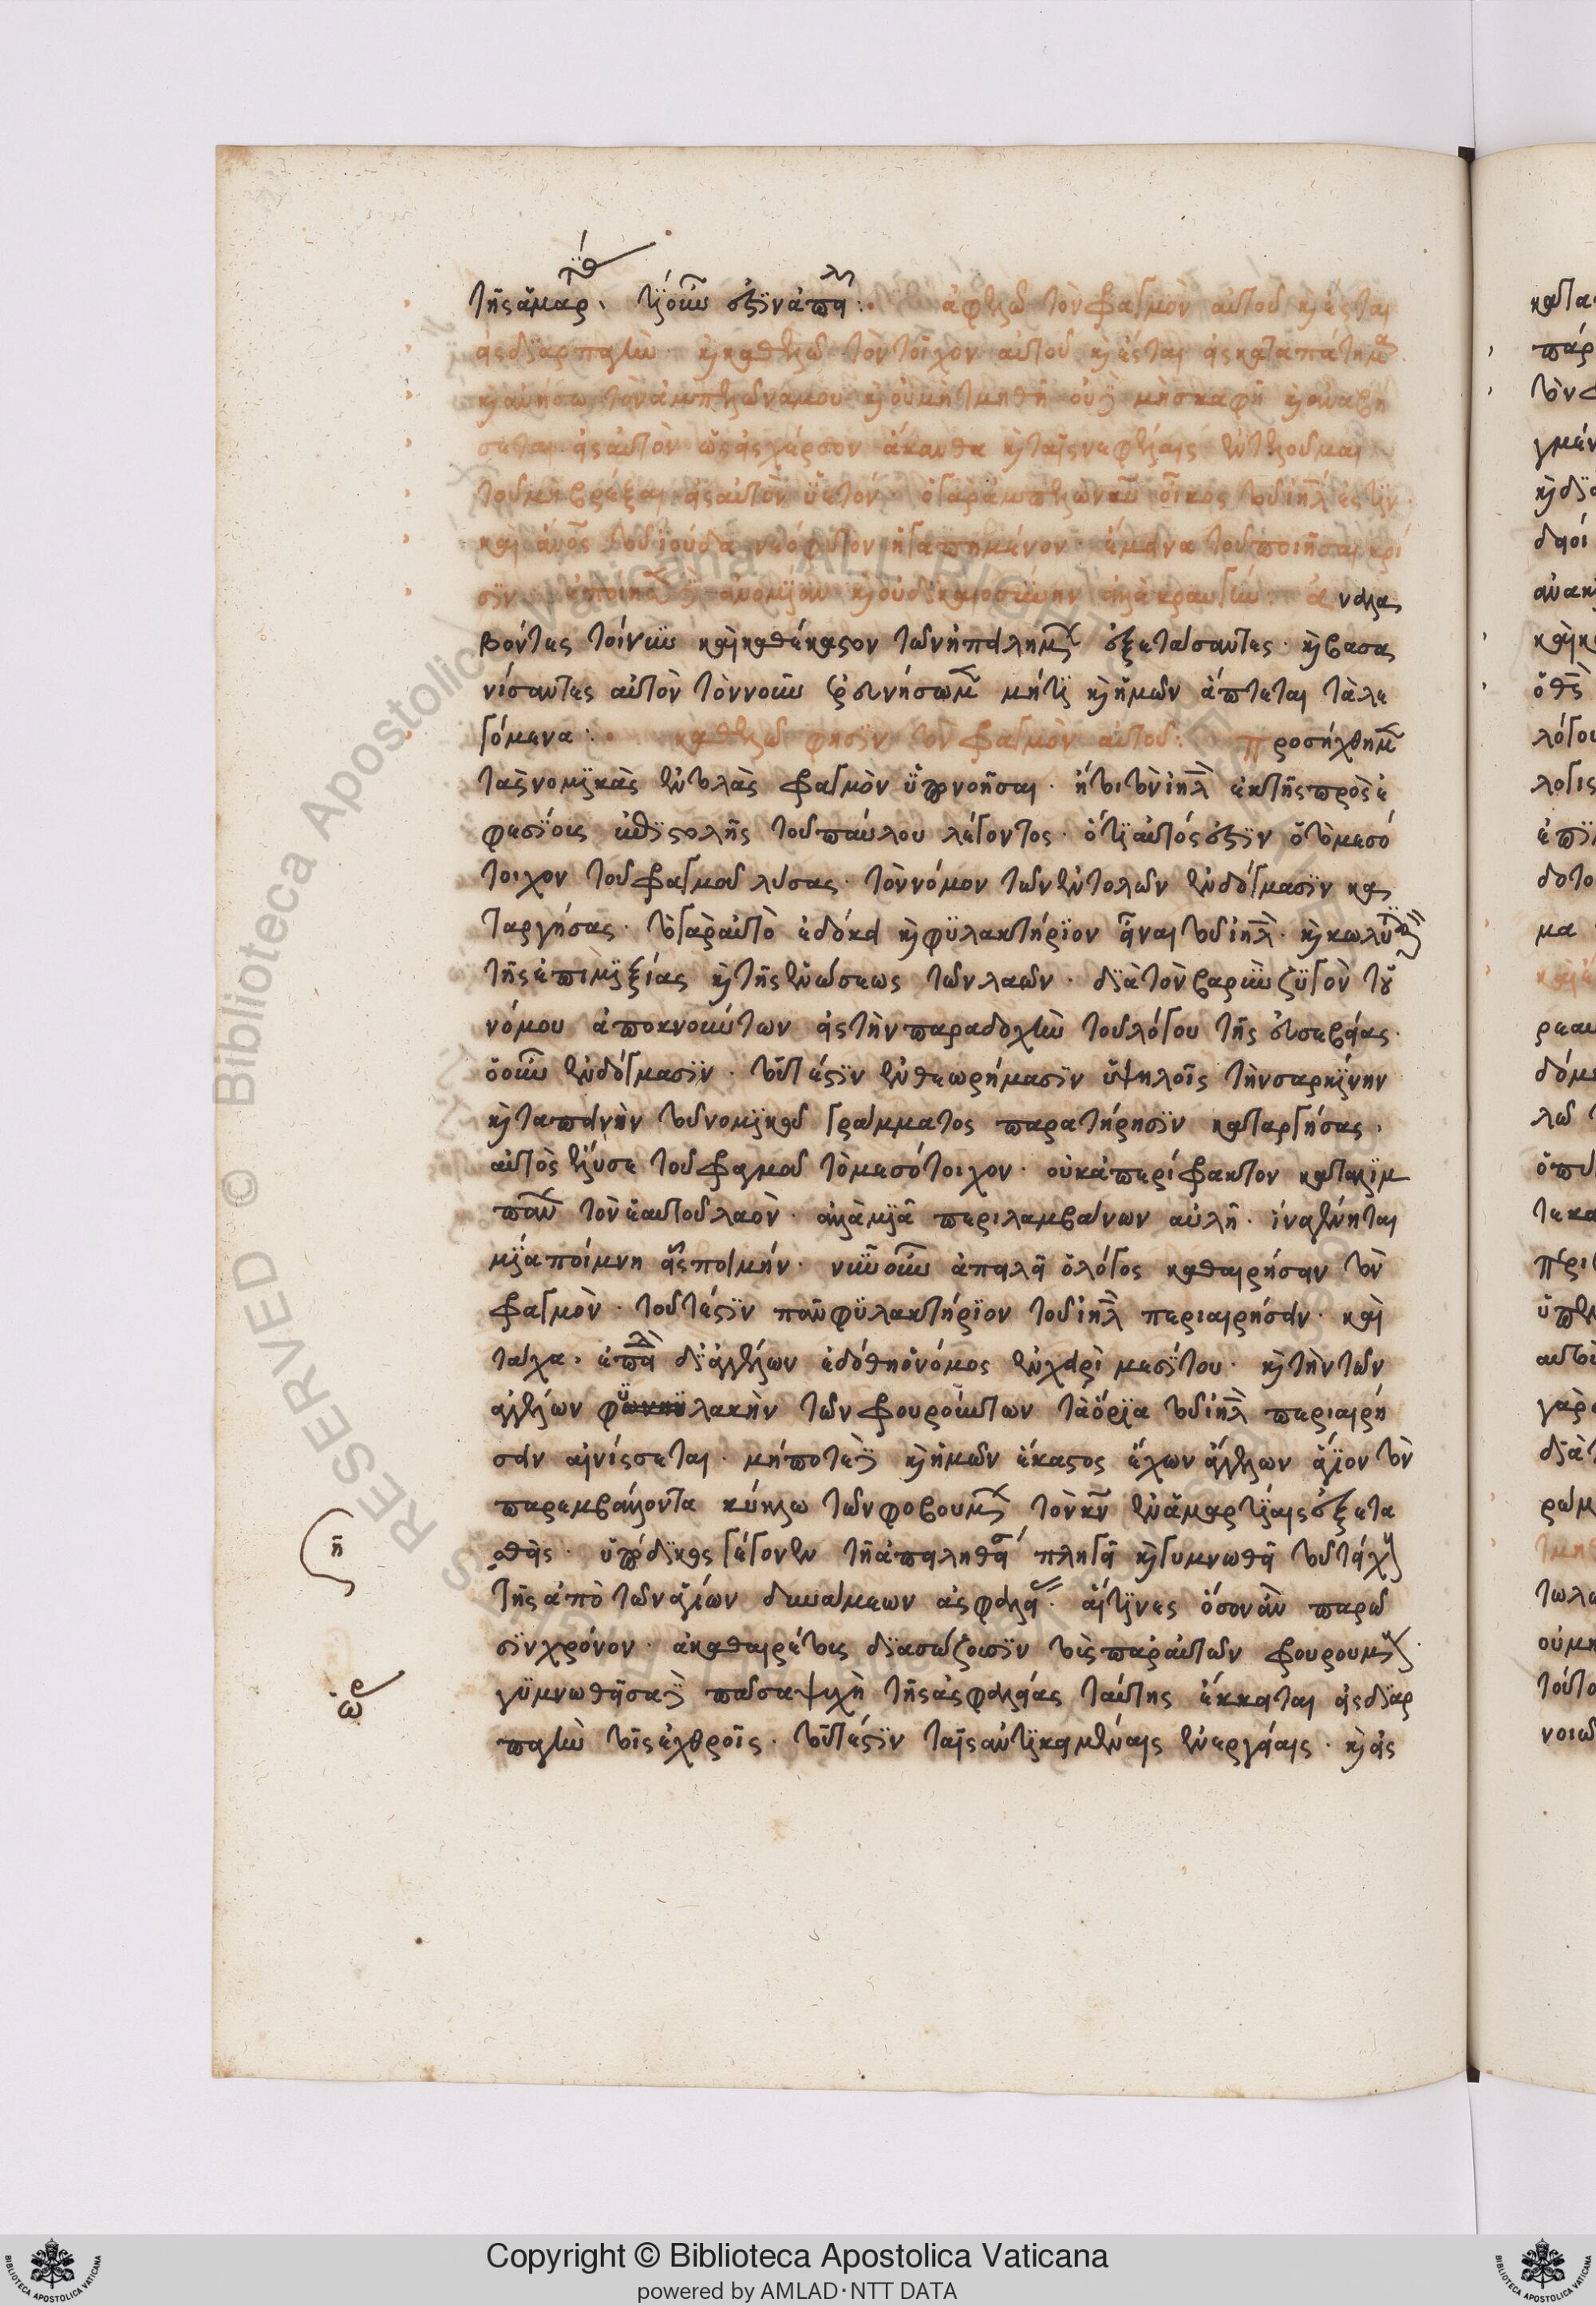 τῆς ἁμαρ τί οὖν ἐστὶν ἀπει: ἀφελῶ τὸν φραγμὸν αὐτοῦ κ(αὶ) ἔσται
εἰς διαρπαγὴν· κ(αὶ) καθελῶ τὸν τοῖχον αὐτοῦ κ(αὶ) ἔσται εἰς καταπάτημα·
κ(αὶ) ἀνήσω τὸν ἀμπελῶνα μου κ(αὶ) οὐ μὴ τμηθῆ οὐδὲ μὴ σκαφῆ κ(αὶ) ἀναβή
σεται εἰς αὐτὸν ὡς εἰς χέρσον ἄκανθα κ(αὶ) ταῖς νεφέλαις ἐντελοῦμαι
τοῦ μὴ βρέξαι εἰς αὐτὸν ὑετόν· ὁ γὰρ ἀμπελὼν κυ οἶκος τοῦ ιηλ ἐστὶν·
καὶ ανος τοῦ ἰούδα νεόφυτον ἠγαπημένον· ἔμεινα τοῦ ποιῆσαι κρί
σιν· ἐποίησε δὲ ἀνομίαν κ(αὶ) οὐ δικαιοσύνην ἀλλὰ κραυγήν· ἀναλα
βόντες τοίνυν καὶ καθέκαστον τῶν ἠπειλημ ἐξετάσαντες· κ(αὶ) βασα
νίσαντες αὐτὸν τὸν νοῦν ἐρευνήσωμεν μήτι κ(αὶ) ἡμῶν ἅπτεται τὰ λε
γόμενα: καθελῶ φησὶν τὸν φραγμὸν αὐτοῦ: προσήχθημεν
τὰς νομικὰς ἐντολὰς φραγμὸν ὑπονοῆσαι· ἤτοι τὸν ιηλ ἐκ τῆς πρὸς ἐ
φεσίους ἐπιστολῆς τοῦ παύλου λέγοντος· ὅτι αὐτός ἐστιν ὁ τὸ μεσό
τοιχον τοῦ φραγμοῦ λύσας· τὸν νόμον τῶν ἐντολῶν ἐν δόγμασιν κα
ταργήσας· τὸ γὰρ αὐτὸ ἐδόκει κ(αὶ) φυλακτήριον εἶναι τοῦ ιηλ· κ(αὶ) κωλυ
τῆς ἐπιμιξίας κ(αὶ) τῆς ἑνώσεως τῶν λαῶν· διὰ τὸν βαρὺν ζυγὸν τοῦ
νόμου ἀποκνούντων εἰς τὴν παραδοχὴν τοῦ λόγου τῆς εὐσεβείας·
ὁ οὖν ἐν δόγμασιν· τοῦτέστιν ἐν θεωρήμασιν ὑψηλοῖς τὴν σαρκίνην
κ(αὶ) ταπεινὴν τοῦ νομικοῦ γράμματος παρατήρησιν καταργήσας·
αὐτὸς ἔλυσε τοῦ φραγμοῦ τὸ μεσότοιχον· οὐκ ἀπερίφρακτον καταλιμ
πάνων τὸν ἑαυτοῦ λαὸν· ἀλλὰ μιᾶ περιλαμβάνων αὐλῆ· ἵνα γένηται
μία ποίμνη εἷς ποιμήν· νῦν οὖν ἀπειλεῖ ὁ λόγος καθαιρήσειν τὸν
φραγμὸν· τουτέστιν πᾶν φυλακτήριον τοῦ ιηλ περιαιρήσειν· καὶ
τάχα· ἐπεὶ δι' ἀγγέλων ἐδόθη ὁ νόμος ἐν χειρὶ μεσίτου· κ(αὶ) τὴν τῶν
ἀγγέλων φυλακὴν τῶν φρουρούντων τὰ ὅρια τοῦ ιηλ περιαιρή
σειν αἰνίσσεται· μήποτε δὲ κ(αὶ) ἡμῶν ἕκαστος ἔχων ἄγγελον ἅγιον τὸν
παρεμβάλλοντα κύκλω τῶν φοβουμ τὸν κν ἐν ἁμαρτίαις ἐξετα
σθεὶς· ὑπόδικος γέγονεν τῆ ἀπειληθεί πληγῆ κ(αὶ) γυμνωθῆ τοῦ τείχ
τῆς ἀπὸ τῶν ἁγίων δυνάμεων ἀσφαλεί· αἵτινες ὅσον ἂν παρῶ
σιν χρόνον· ἀκαθαιρέτους διασώζουσιν τοὺς παρ' αὐτῶν φρουρουμ
γυμνωθεῖσα δὲ πᾶσα ψυχὴ τῆς ἀσφαλείας ταύτης ἔκκειται εἰς διαρ
παγὴν τοῖς ἐχθροῖς· τοῦτέστιν ταῖς ἀντικειμέναις ἐνεργείαις· κ(αὶ) εἰς
RESERVED © Biblioteca Apostolica Vaticana ALL RIGHTS
Copyright © Biblioteca Apostolica Vaticana
powered by AMLAD·NTT DATA